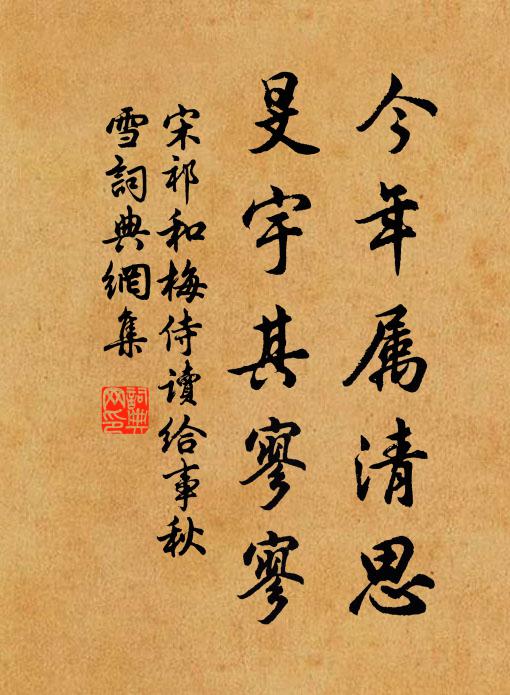 今年属清思
旻宇其寥寥
宋祁和梅侍读给事秋
雪詞典網集
詞典網印